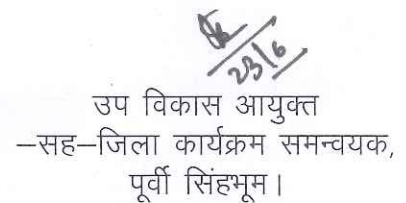 23/6
उप विकास आयुक्त
–सह–जिला कार्यक्रम समन्वयक,
पूर्वी सिंहभूम।